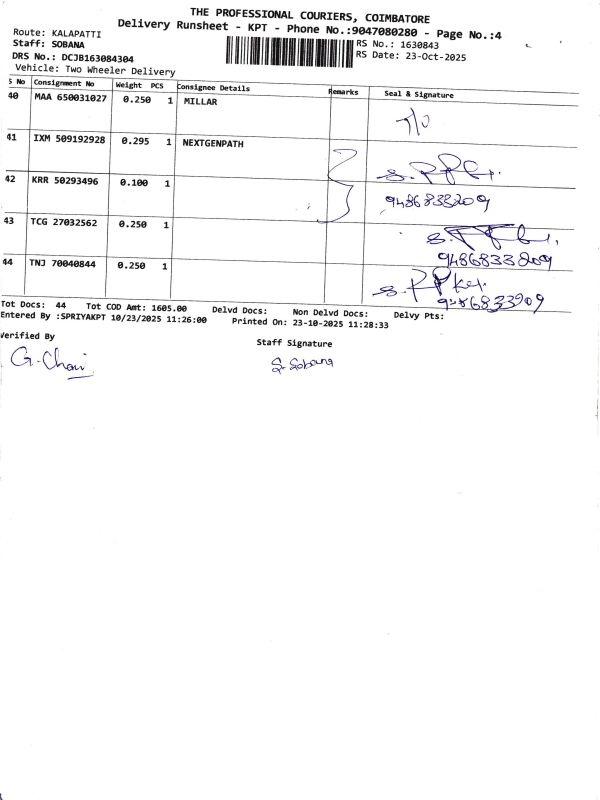 THE PROFESSIONAL COURIERS, COIMBATORE
Delivery Runsheet - KPT - Phone No.:9047080280 - Page No.:4
Route: KALAPATTI
RS No.: 1630843
Staff: SOBANA
RS Date: 23-Oct-2025
DRS No.: DCJB163084304
Vehicle: Two Wheeler Delivery
S No Consignment No Weight PCS Consignee Details Remarks Seal & Signature
40 MAA 650031027 0.250 1 MILLAR
T/O
41 IXM 509192928 0.295 1 NEXTGENPATH
42 KRR 50293496 0.100 1
9486833209
43 TCG 27032562 0.250 1
9486833209
44 TNJ 70040844 0.250 1
9486833209
Tot Docs: 44 Tot COD Amt: 1605.00 Delvd Docs: Non Delvd Docs: Delvy Pts:
Entered By :SPRIYAKPT 10/23/2025 11:26:00 Printed On: 23-10-2025 11:28:33
Verified By
Staff Signature
S. Sobana